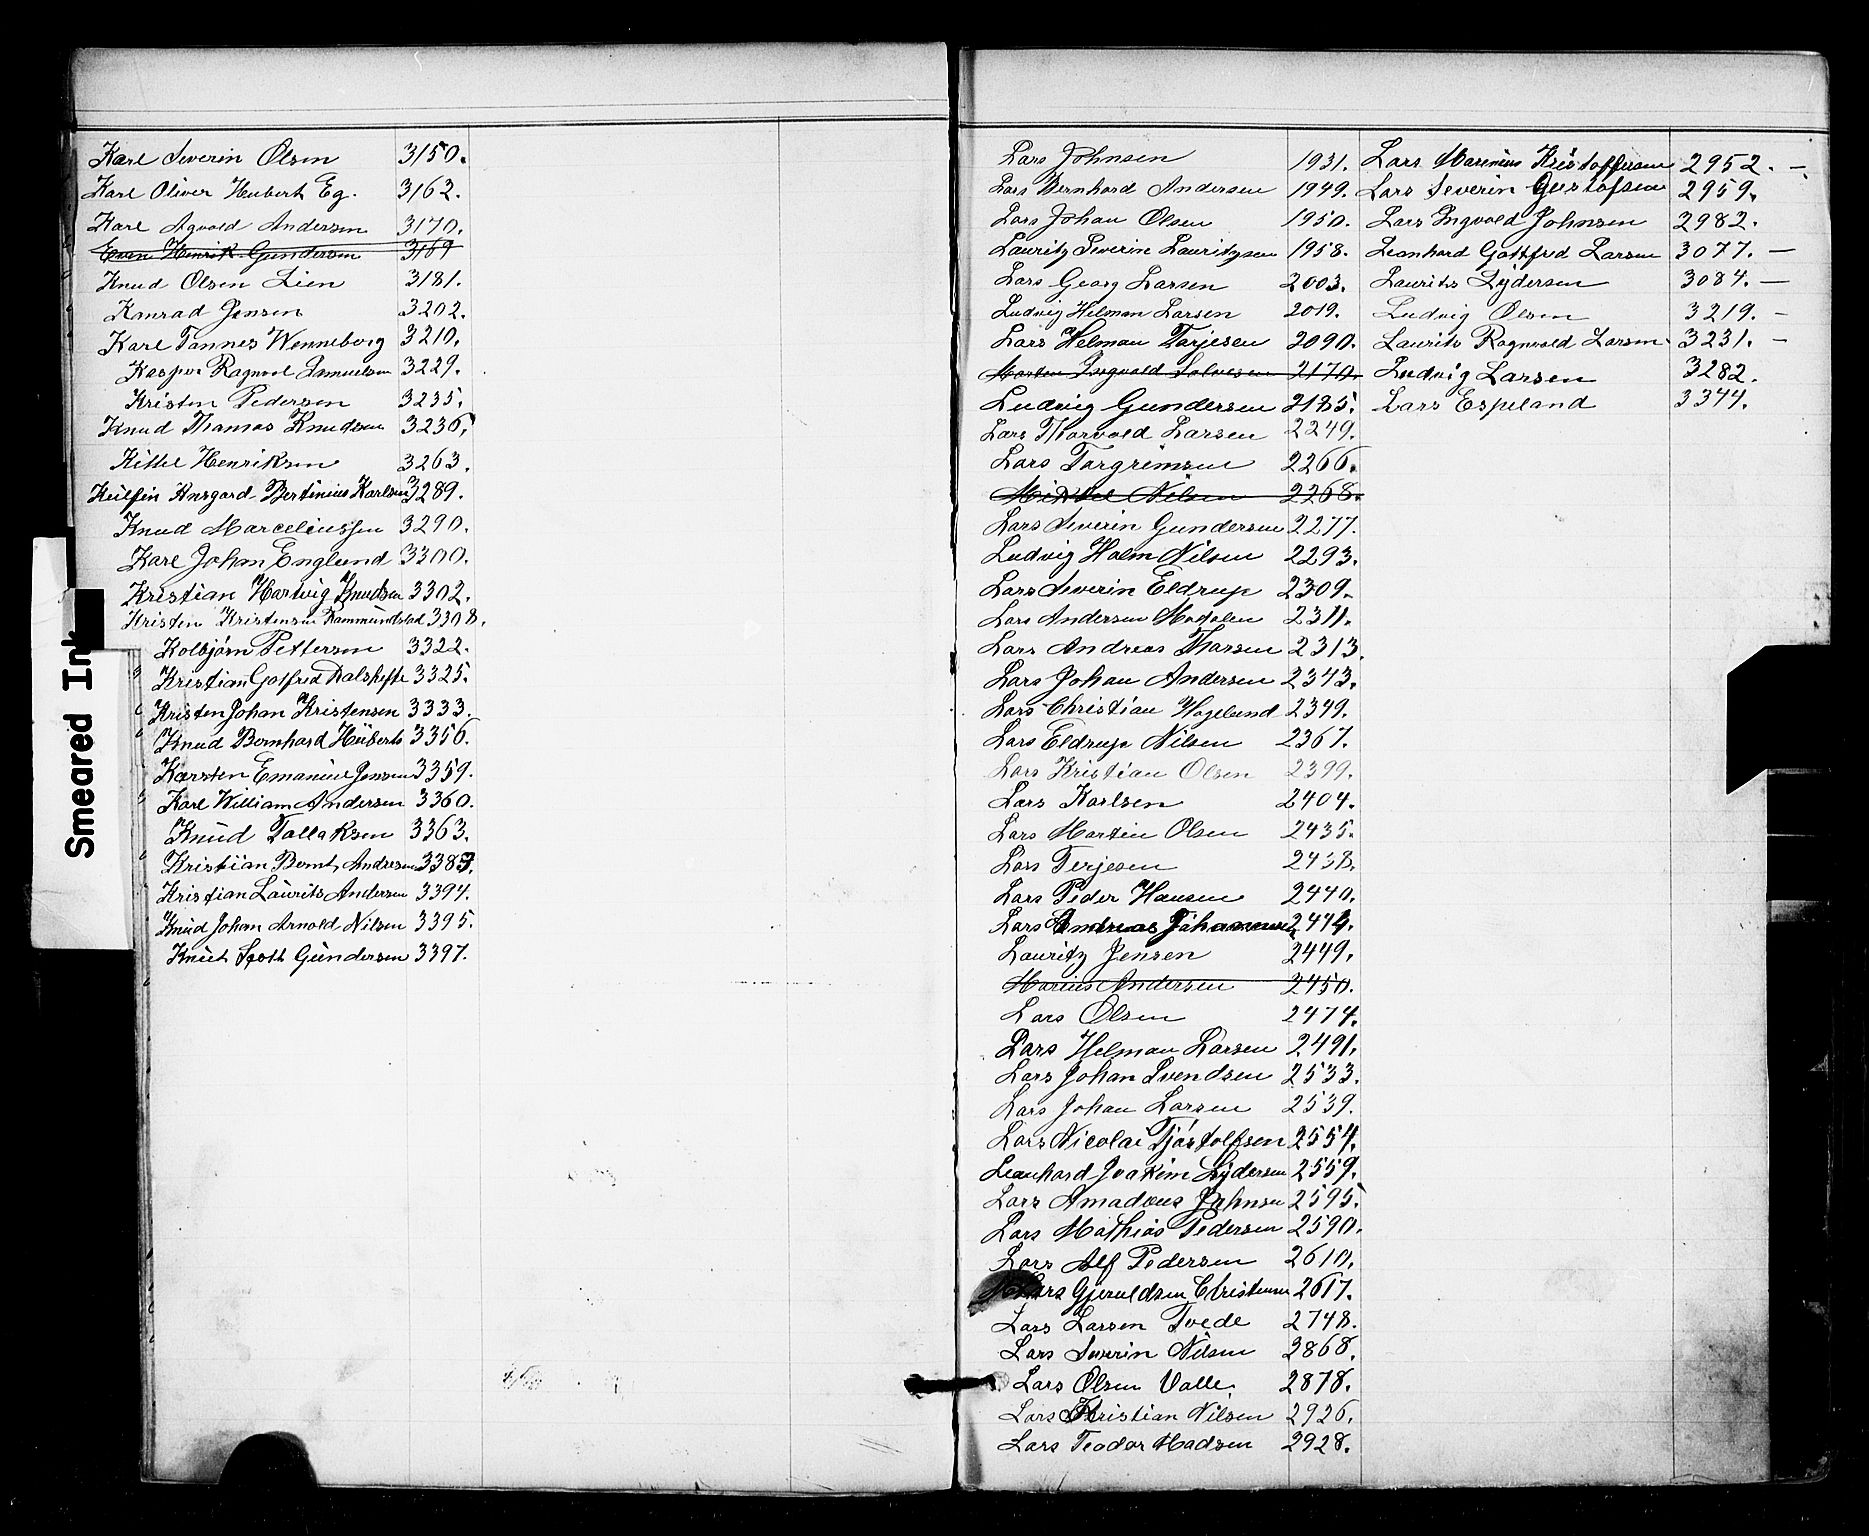 Karl Severin Olsen 3150.
Karl Oliver Hubert Eg. 3162.
Karl Agvald Andersen 3170.
Even Henrik Gundersen 3169
Knud Olsen Lien 3181.
Konrad Jensen 3202.
Karl Tannes Wenneborg 3210.
Kasper Ragnvol Samuelsen 3229.
Kristen Pedersen 3235.
Knud Thomas Knudsen 3236.
Kittel Henriksen 3263.
Ansgard Bertinius Karlsen 3289.
Knud Marceliussen 3290.
Karl Johan Englund 3300.
Kristian Hartvig Knudsen 3302.
Kristen Kristensen Rammundstad 3308.
Kolbjørn Pettersen 3322.
Kristian Gotfred Dalshefte 3325.
Kristen Johan Kristensen 3333.
Knud Bernhard Hüberts 3356.
Karsten Emanuel Jensen 3359.
Karl William Andersen 3360.
Knud Tallaksen 3363.
Kristian Bernt Andresen 3387.
Kristian Laurits Andersen 3394.
Knud Johan Arnold Nilsen 3395.
Knut Scott Gundersen 3397.
Smeared Ink
Lars Johnsen 1931.
Lars Bernhard Andersen 1949.
Lars Johan Olsen 1950.
Lauritz Severin Lauritzsen 1958.
Lars Georg Larsen 2003.
Ludvig Hilman Larsen 2019.
Lars Helman Tarjesen 2090.
Morten Ingvald Salvesen 2170.
Ludvig Gundersen 2185.
Lars Thorvald Larsen 2249.
Lars Targrimsen 2266.
Mikkel Nilsen 2268.
Lars Severin Gundersen 2277.
Ludvig Holm Nilsen 2293.
Lars Severin Eldrup 2309.
Lars Andersen Modalen 2311.
Lars Andreas Thorsen 2313.
Lars Johan Andersen 2343.
Lars Christian Hagelund 2349.
Lars Eldrup Nilsen 2367.
Lars Kristian Olsen 2399.
Lars Karlsen 2404.
Lars Martin Olsen 2435.
Lars Terjesen 2438.
Lars Peder Hansen 2440.
Lars Andreas Johannesen 2444.
Lauritz Jensen 2449.
Marius Andersen 2450.
Lars Olsen 2474.
Lars Helman Larsen 2491.
Lars Johan Svendsen 2533.
Lars Johan Larsen 2539.
Lars Nicolai Tjøstolfsen 2554.
Leonhard Joakim Lydersen 2559.
Lars Amadeus Johnsen 2595.
Lars Mathias Pedersen 2590.
Lars Alf Pedersen 2610.
Lars Gjeruldsen Christensen 2617.
Lars Larsen Tvede 2748.
Lars Severin Nilsen 2868.
Lars Olsen Valle. 2878.
Lars Kristian Nilsen 2926.
Lars Teodor Madsen 2928.
Lars Marenius Kristoffersen 2952. —
Lars Severin Gustafsen 2959.
Lars Ingvald Johnsen 2982.
Leonhard Gottfred Larsen 3077. —
Laurits Lydersen 3084. —
Ludvig Olsen 3219. —
Laurits Ragnvald Larsen 3231. —
Ludvig Larsen 3282.
Lars Espeland 3344.